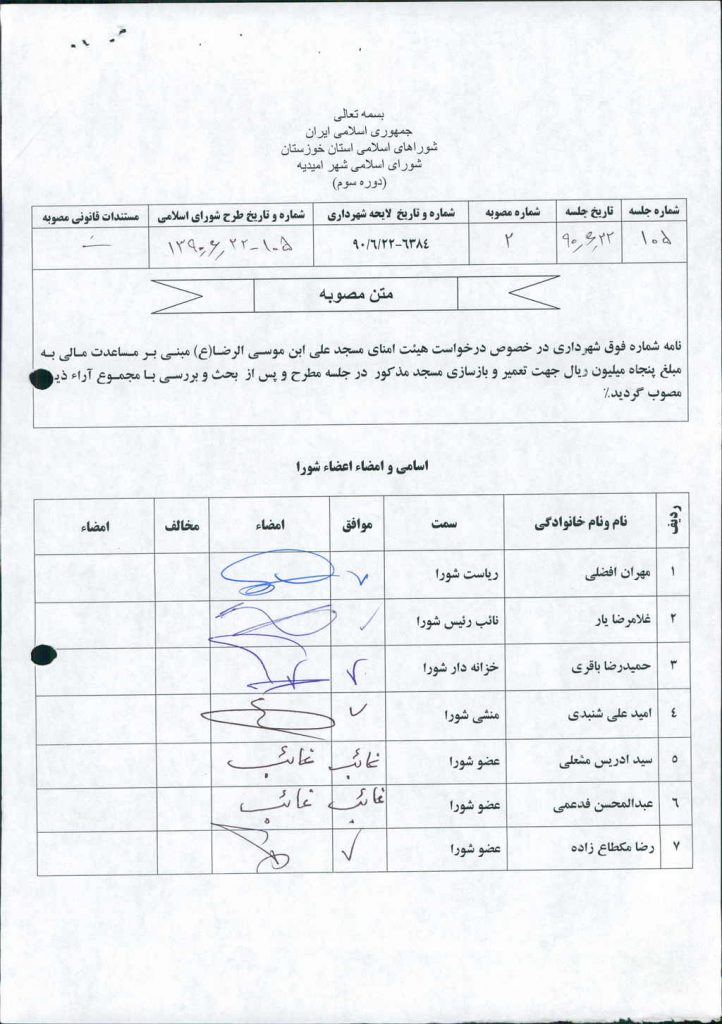 بسمه تعالی
جمهوری اسلامی ایران
شوراهای اسلامی استان خوزستان
شورای اسلامی شهر امیدیه
(دوره سوم)
شماره جلسه تاریخ جلسه شماره مصوبه شماره و تاریخ لایحه شهرداری شماره و تاریخ طرح شورای اسلامی مستندات قانونی مصوبه
۱۰۵ ۹۰/۶/۲۲ ۲ ۶۳۸۴-۹۰/۶/۲۲ ۱۰۵-۱۳۹۰/۶/۲۲
متن مصوبه
نامه شماره فوق شهرداری در خصوص درخواست هیئت امنای مسجد علی ابن موسی الرضا(ع) مبنی بر مساعدت مالی به
مبلغ پنجاه میلیون ریال جهت تعمیر و بازسازی مسجد مذکور در جلسه مطرح و پس از بحث و بررسی با مجموع آراء
مصوب گردید٪
اسامی و امضاء اعضاء شورا
ردیف نام ونام خانوادگی سمت موافق امضاء مخالف امضاء
۱ مهران افضلی ریاست شورا
۲ غلامرضا یار نائب رئیس شورا
۳ حمیدرضا باقری خزانه دار شورا
۴ امید علی شنبدی منشی شورا
۵ سید ادریس مشعلی عضو شورا غائب غائب
۶ عبدالمحسن فدعمی عضو شورا غائب غائب
۷ رضا مکطاع زاده عضو شورا